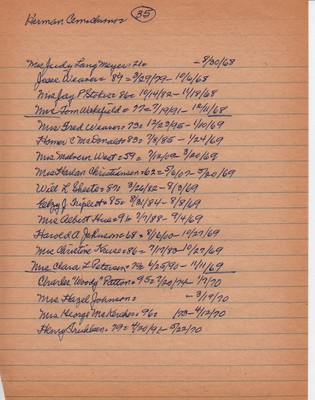 Herman
35
Mrs Judy Lang Meyer = 21 = - 8/30/68
Jesse Weaver = 89 = 3/29/79 - 10/6/68
Mrs Jay P Stokes = 86 = 10/14/82 - 11/18/68
Mrs Tom Wakefield = 77 = 7/19/91 - 12/11/68
Mrs Fred Weaver = 73 = 12/23/95 - 1/10/69
Homer C McDonald = 83 = 7/8/85 - 1/24/69
Mrs West = 59 = 3/20/69
Mrs Harlan Christiansen = 62 = 5/20/69
Will L Sheets = 87 = 3/26/82 - 8/3/69
J. Triplett = 85 = 3/31/84 - 8/8/69
Mrs Albert = 7/7/88 - 9/4/69
Harold A Johnson = 68 = 8/16/00 - 10/27/69
Mrs Christine Kruse = 86 = 7/17/83 - 10/27/69
Mrs Clara L Peterson = 79 = 4/25/90 - 11/11/69
Charles "Woody" Patton = 95 = 2/20/74 - 1/7/70
Mrs Hazel Johnson = - 3/19/70
Mrs George = 96 = /73 - 4/12/70
Henry = 79 = 4/20/91 - 5/22/70